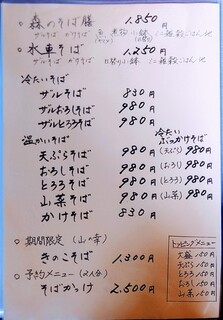 ○ 森のそば膳 1.850円
ザルそば かけそば
○ 水車そば 1.250円
ザルそば かけそば 日替り小鉢
冷たいそば
ザルそば 830円
ザルおろしそば 980円
ザルとろろそば 980円
温かいそば 冷たいぶっかけそば
天ぷらそば 980円 (天ぷら) 980円
おろしそば 980円 (おろし) 980円
とろろそば 980円 (とろろ) 980円
山菜そば 980円 (山菜) 980円
かけそば 830円
○ 期間限定 (山の幸)
きのこそば 1.300円
○ 予約メニュー (2人分)
そばがっけ 2.500円
トッピングメニュー
大盛 150円
天ぷら 150円
とろろ 150円
おろし 150円
山菜 150円